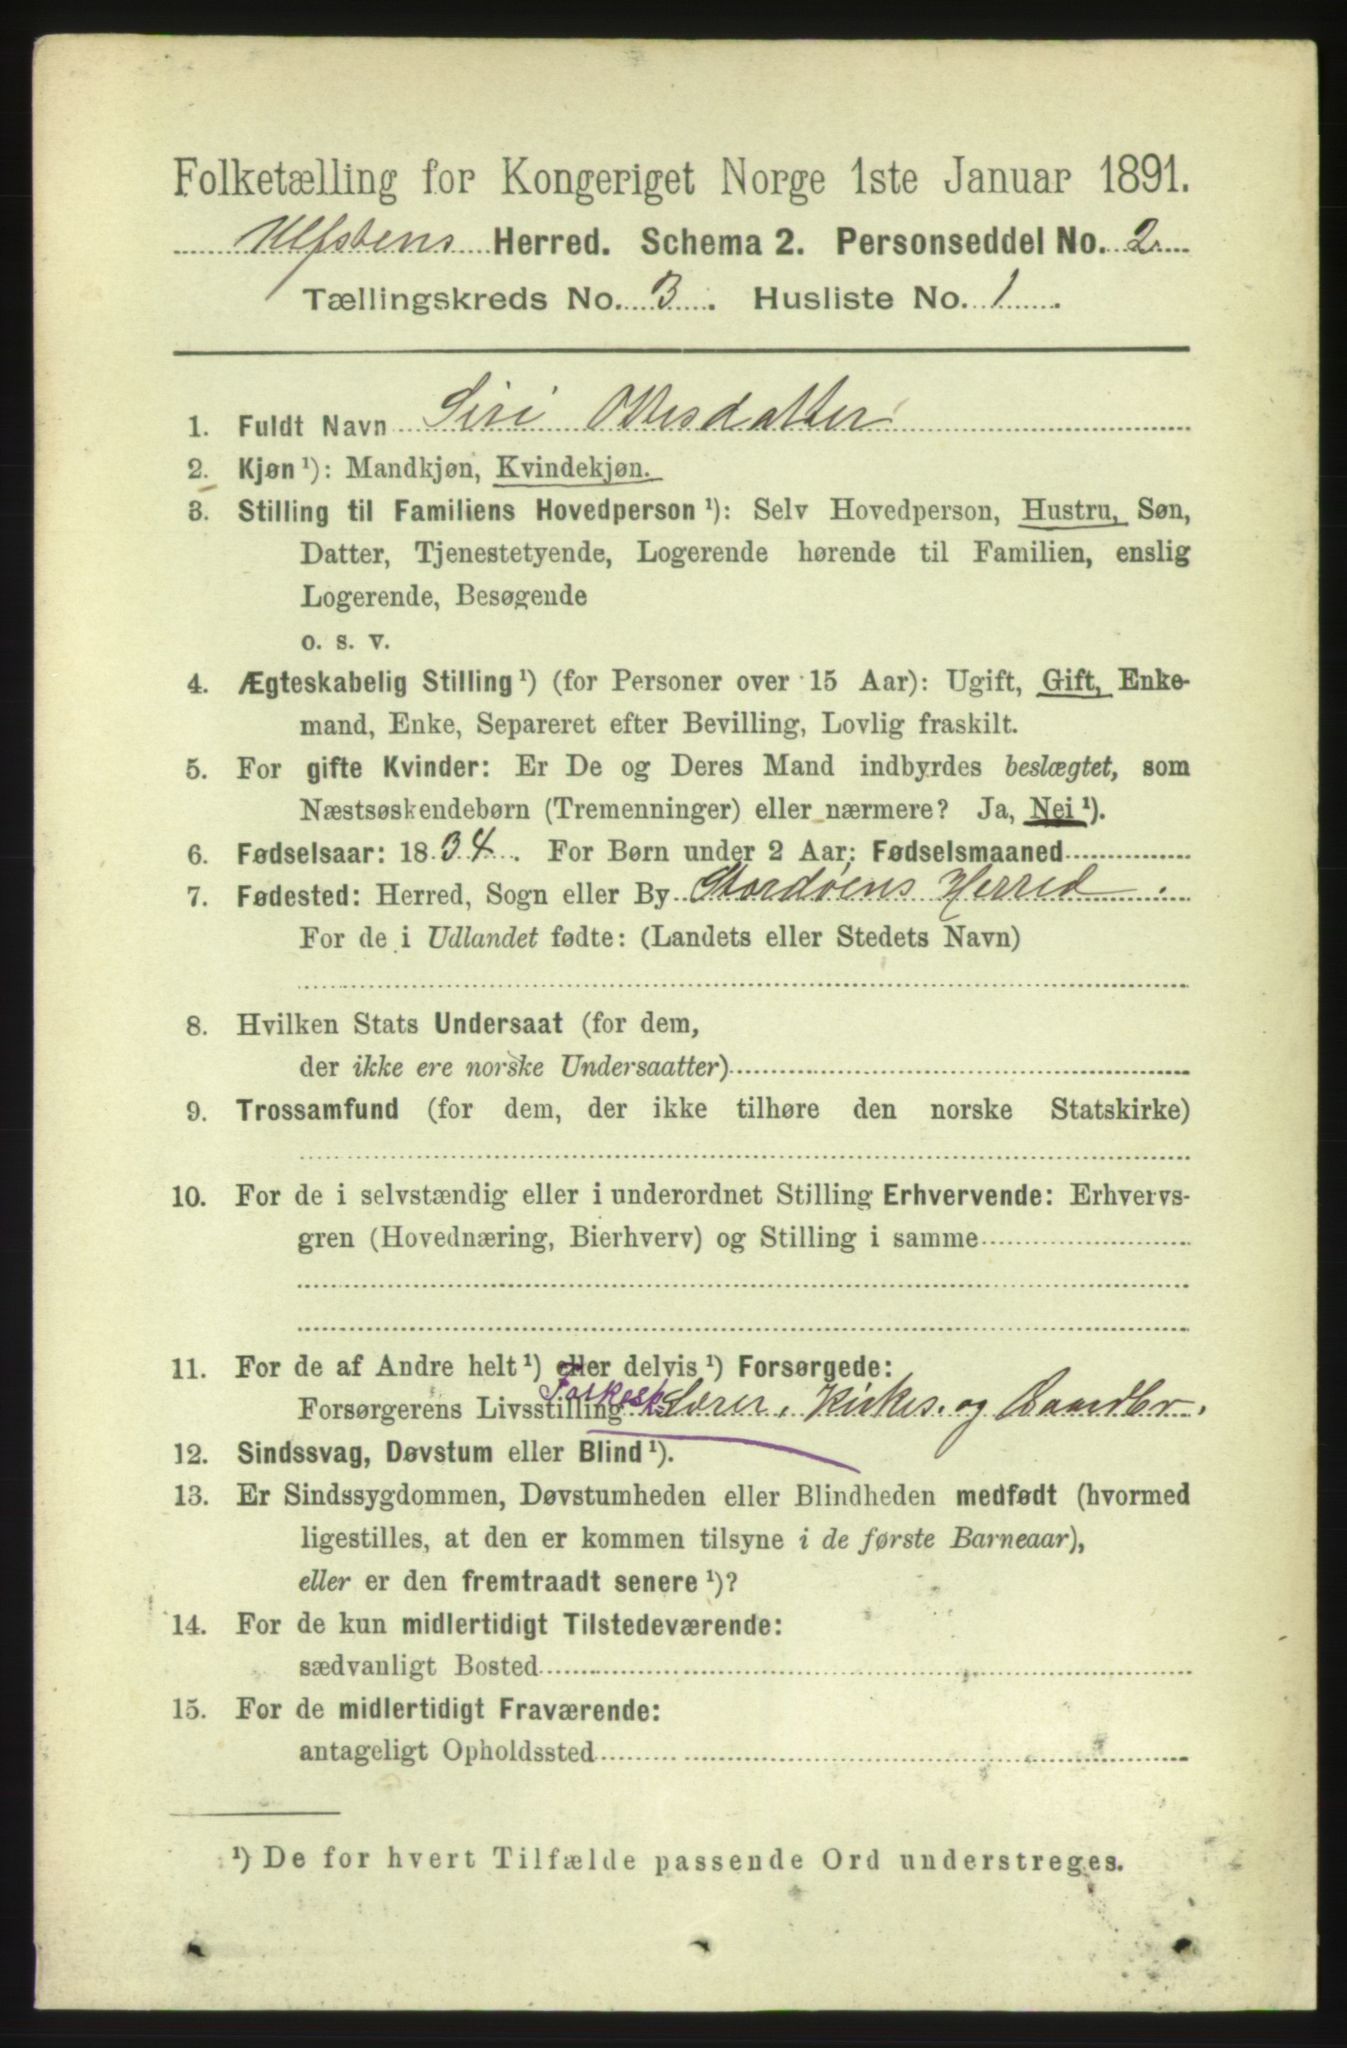 Folketælling for Kongeriget Norge 1ste Januar 1891.
Ulfstens Herred. Schema 2. Personseddel No. 2
Tællingskreds No. 3. Husliste No. 1.
1. Fuldt Navn Siri Olsdatter
2. Kjøn ¹): Mandkjøn, Kvindekjøn.
3. Stilling til Familiens Hovedperson ¹): Selv Hovedperson, Hustru, Søn,
Datter, Tjenestetyende, Logerende hørende til Familien, enslig
Logerende, Besøgende
o. s. v.
4. Ægteskabelig Stilling ¹) (for Personer over 15 Aar): Ugift, Gift, Enke-
mand, Enke, Separeret efter Bevilling, Lovlig fraskilt.
5. For gifte Kvinder: Er De og Deres Mand indbyrdes beslægtet, som
Næstsøskendebørn (Tremenninger) eller nærmere? Ja, Nei ¹).
6. Fødselsaar: 1834. For Børn under 2 Aar: Fødselsmaaned
7. Fødested: Herred, Sogn eller By Stordøens Herred.
For de i Udlandet fødte: (Landets eller Stedets Navn)
8. Hvilken Stats Undersaat (for dem,
der ikke ere norske Undersaatter)
9. Trossamfund (for dem, der ikke tilhøre den norske Statskirke)
10. For de i selvstændig eller i underordnet Stilling Erhvervende: Erhvervs-
gren (Hovednæring, Bierhverv) og Stilling i samme
11. For de af Andre helt ¹) eller delvis ¹) Forsørgede:
Forsørgerens Livsstilling Lærer, Kirkes. og Gaardbr.
12. Sindssvag, Døvstum eller Blind ¹).
13. Er Sindssygdommen, Døvstumheden eller Blindheden medfødt (hvormed
ligestilles, at den er kommen tilsyne i de første Barneaar),
eller er den fremtraadt senere ¹)?
14. For de kun midlertidigt Tilstedeværende:
sædvanligt Bosted
15. For de midlertidigt Fraværende:
antageligt Opholdssted
¹) De for hvert Tilfælde passende Ord understreges.